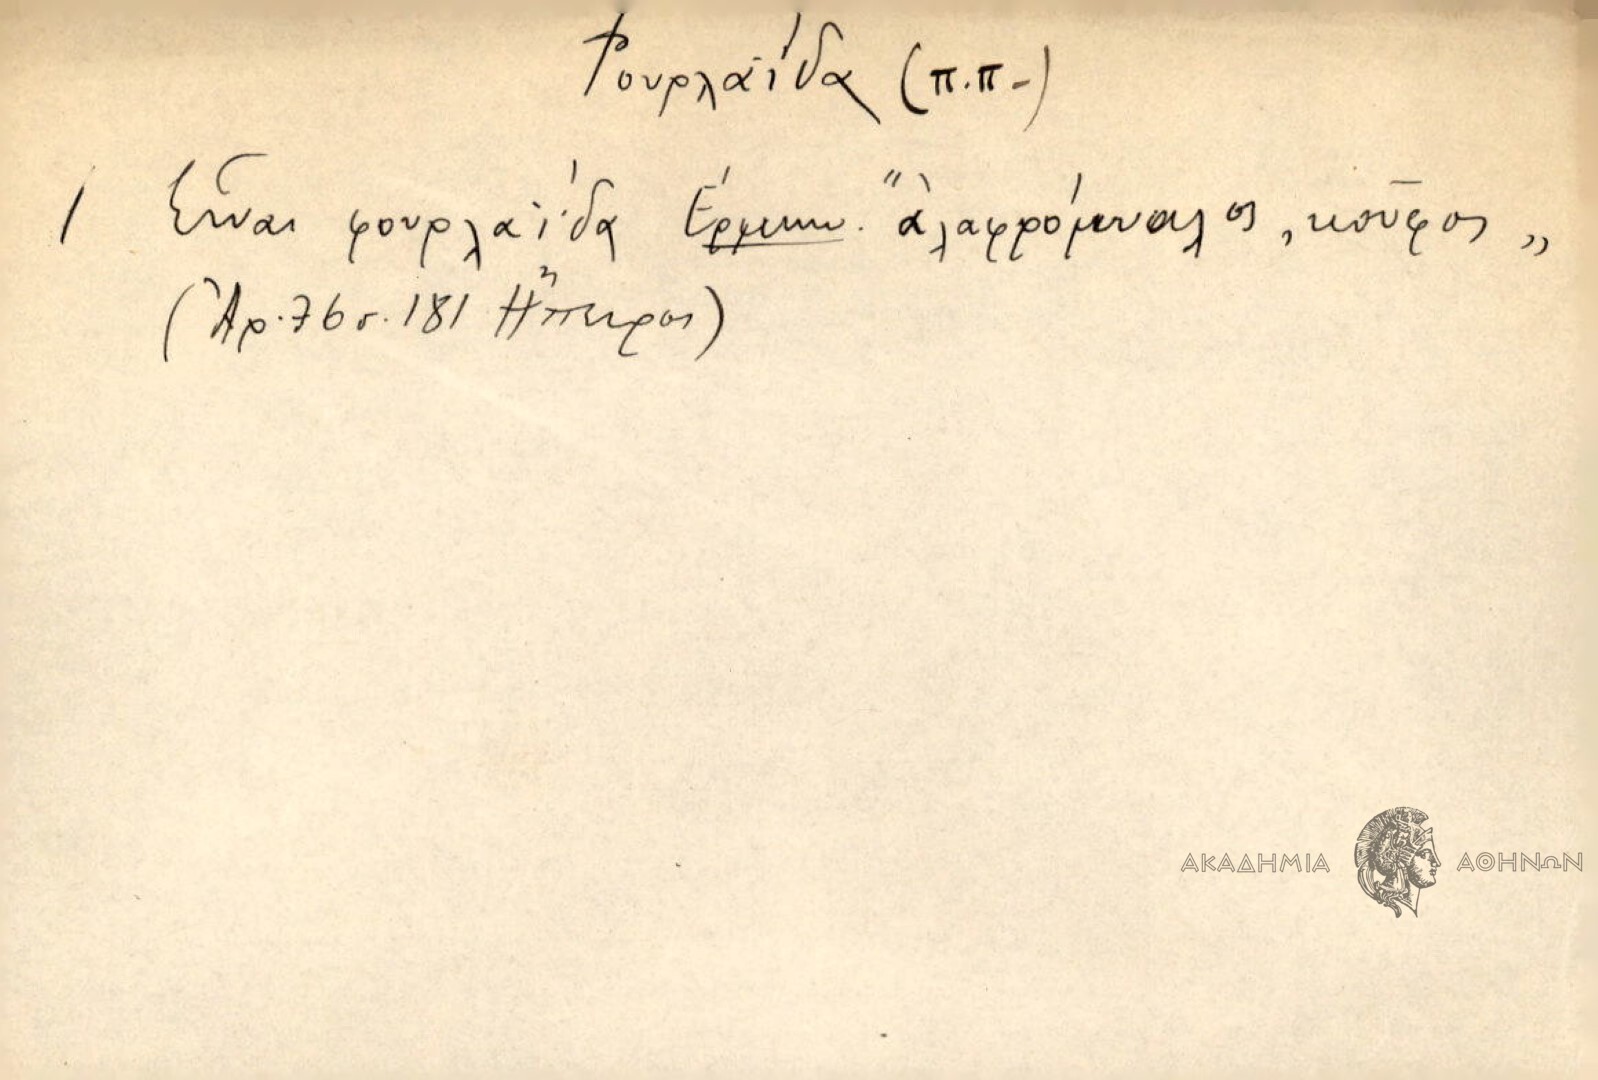 Φουρλαΐδα (π.π-)
1 Εἶναι φουρλαΐδα Ἑρμην. "ἀλαφρόμυαλος, κοῦφος„
(Ἀρ.76 σ.181 Ἤπειρος)
ΑΚΑΔΗΜΙΑ ΑΘΗΝΩΝ